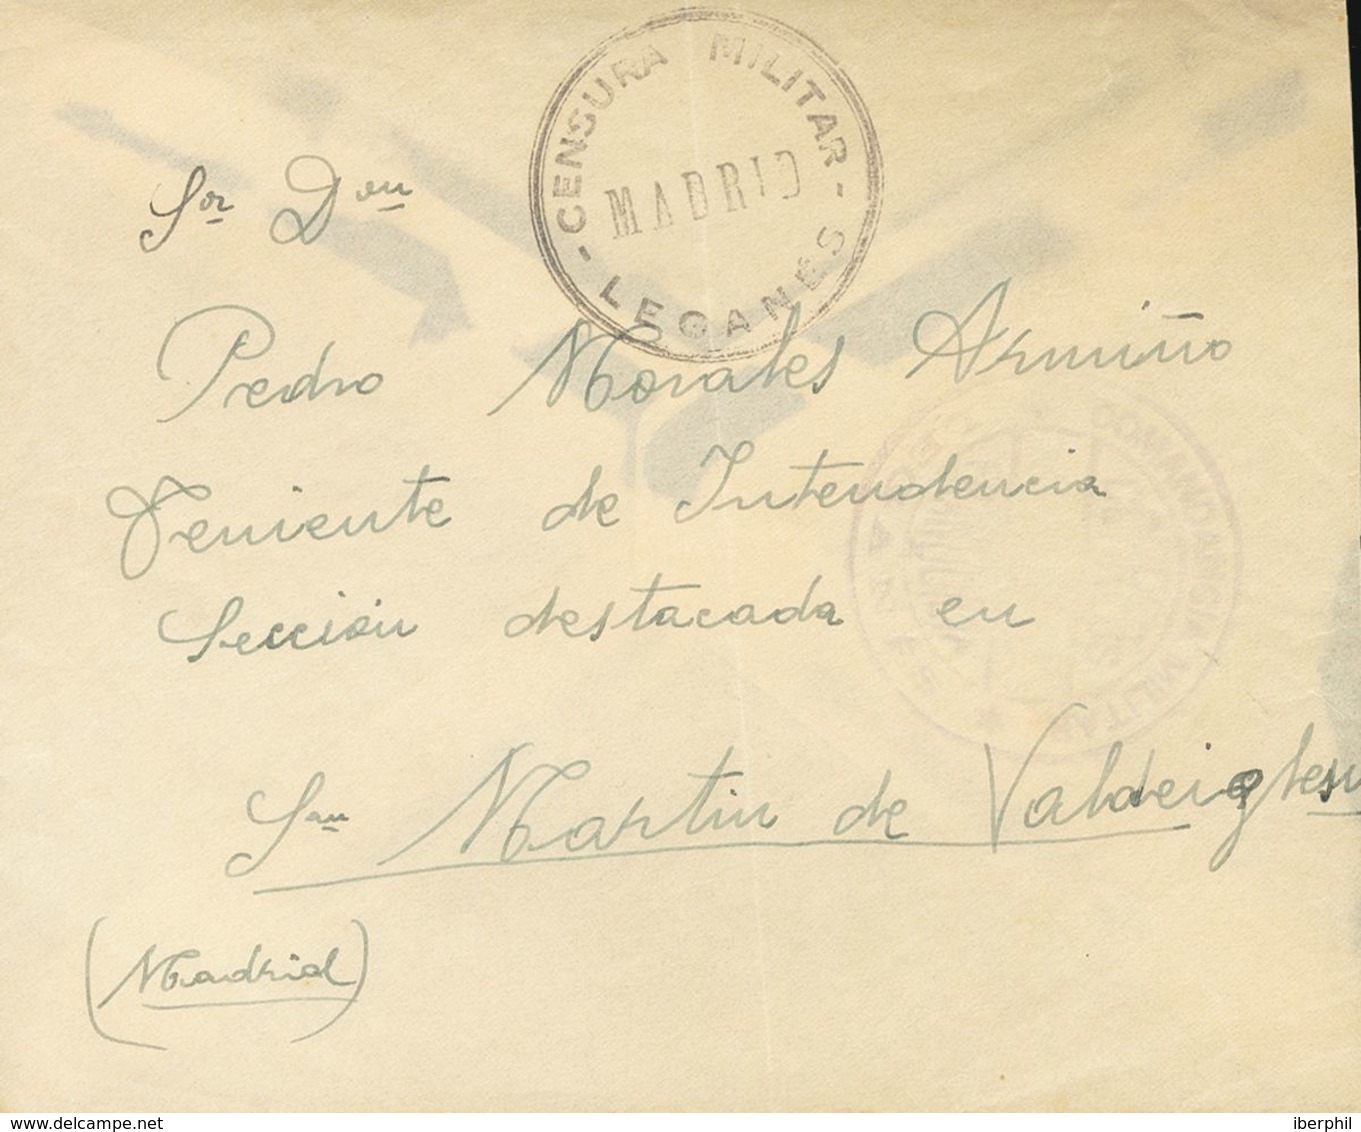 CENSURA MILITAR
MADRID
- LEGANÉS -
Sor Don
Pedro Morales Armiño
Teniente de Intendencia
Sección destacada en
San Martin de Valdeiglesias
(Madrid)
COMANDANCIA MILITAR
delcampe.net
iberphil